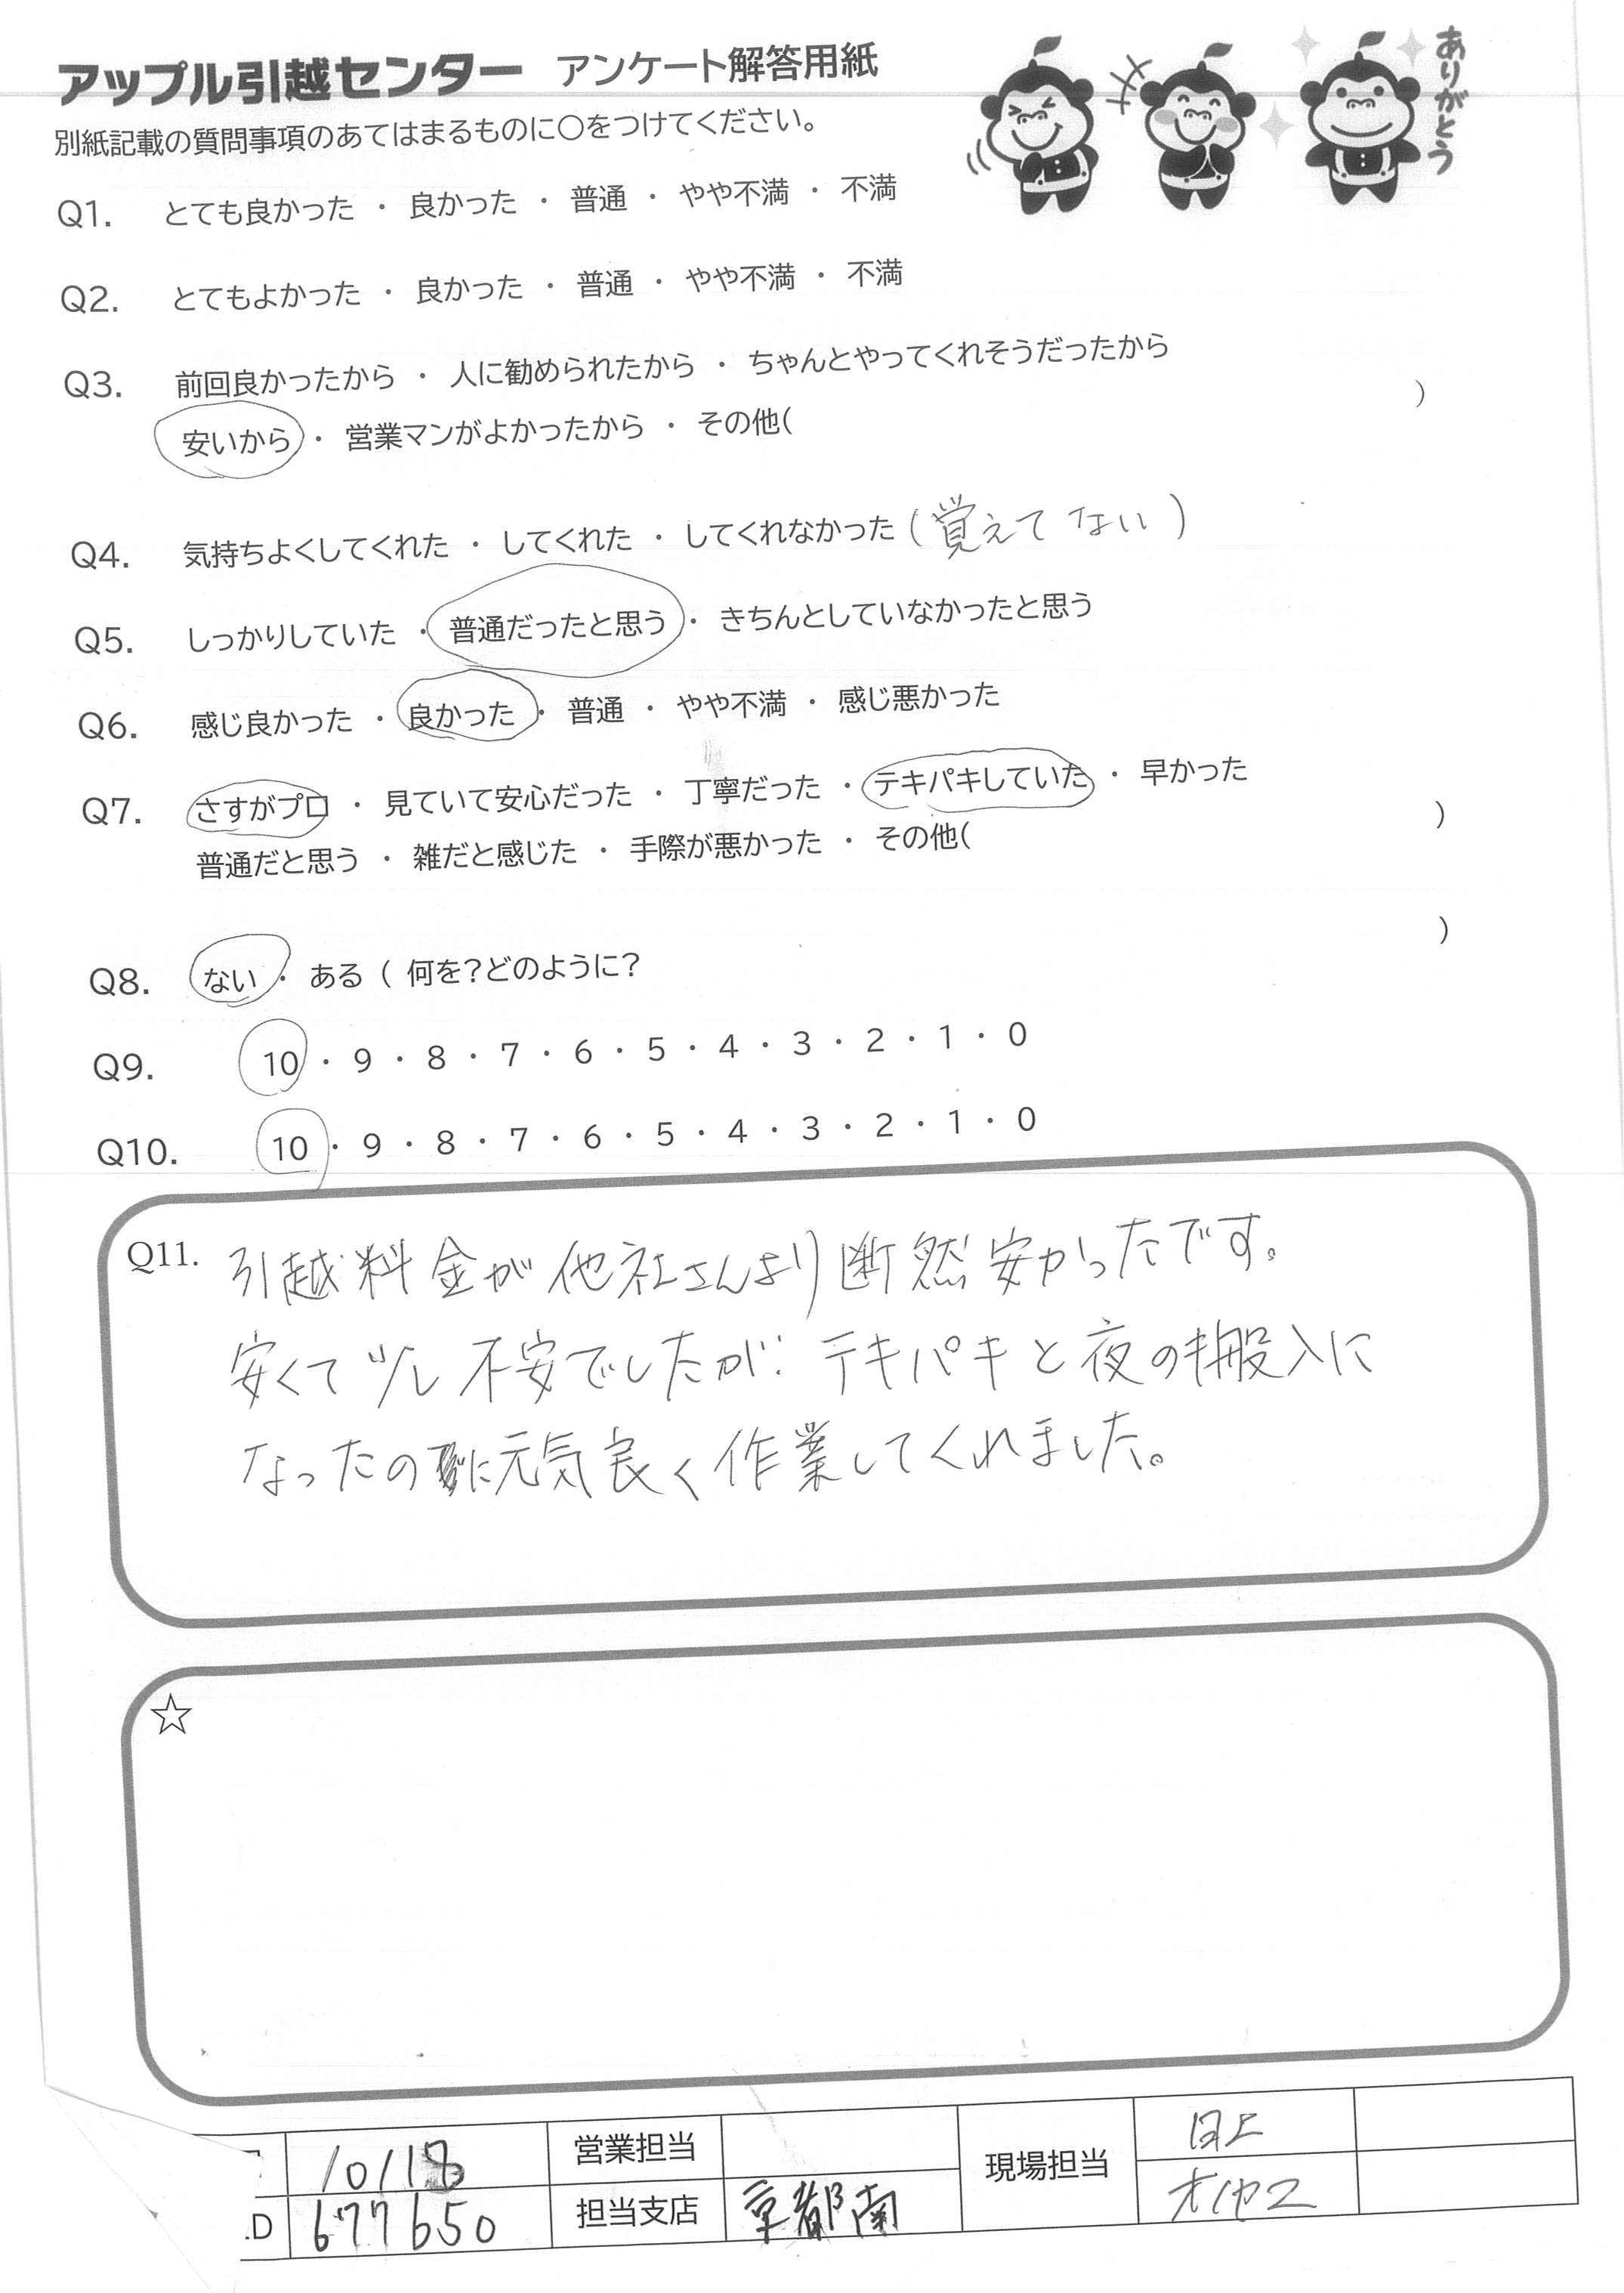 アップル引越センター アンケート解答用紙
ありがとう
別紙記載の質問事項のあてはまるものに〇をつけてください。
Q1. とても良かった ・ 良かった ・ 普通 ・ やや不満 ・ 不満
Q2. とてもよかった ・ 良かった ・ 普通 ・ やや不満 ・ 不満
Q3. 前回良かったから ・ 人に勧められたから ・ ちゃんとやってくれそうだったから
安いから ・ 営業マンがよかったから ・ その他( )
Q4. 気持ちよくしてくれた ・ してくれた ・ してくれなかった (覚えてない)
Q5. しっかりしていた ・ 普通だったと思う ・ きちんとしていなかったと思う
Q6. 感じ良かった ・ 良かった ・ 普通 ・ やや不満 ・ 感じ悪かった
Q7. さすがプロ ・ 見ていて安心だった ・ 丁寧だった ・ テキパキしていた ・ 早かった
普通だと思う ・ 雑だと感じた ・ 手際が悪かった ・ その他( )
Q8. ない ・ ある ( 何を?どのように? )
Q9. 10 ・ 9 ・ 8 ・ 7 ・ 6 ・ 5 ・ 4 ・ 3 ・ 2 ・ 1 ・ 0
Q10. 10 ・ 9 ・ 8 ・ 7 ・ 6 ・ 5 ・ 4 ・ 3 ・ 2 ・ 1 ・ 0
Q11. 引越料金が他社さんより断然安かったです。
安くて少し不安でしたが、テキパキと夜の搬入に
なったのに元気良く作業してくれました。
☆
10/18 営業担当 現場担当
.D 677650 担当支店 京都南